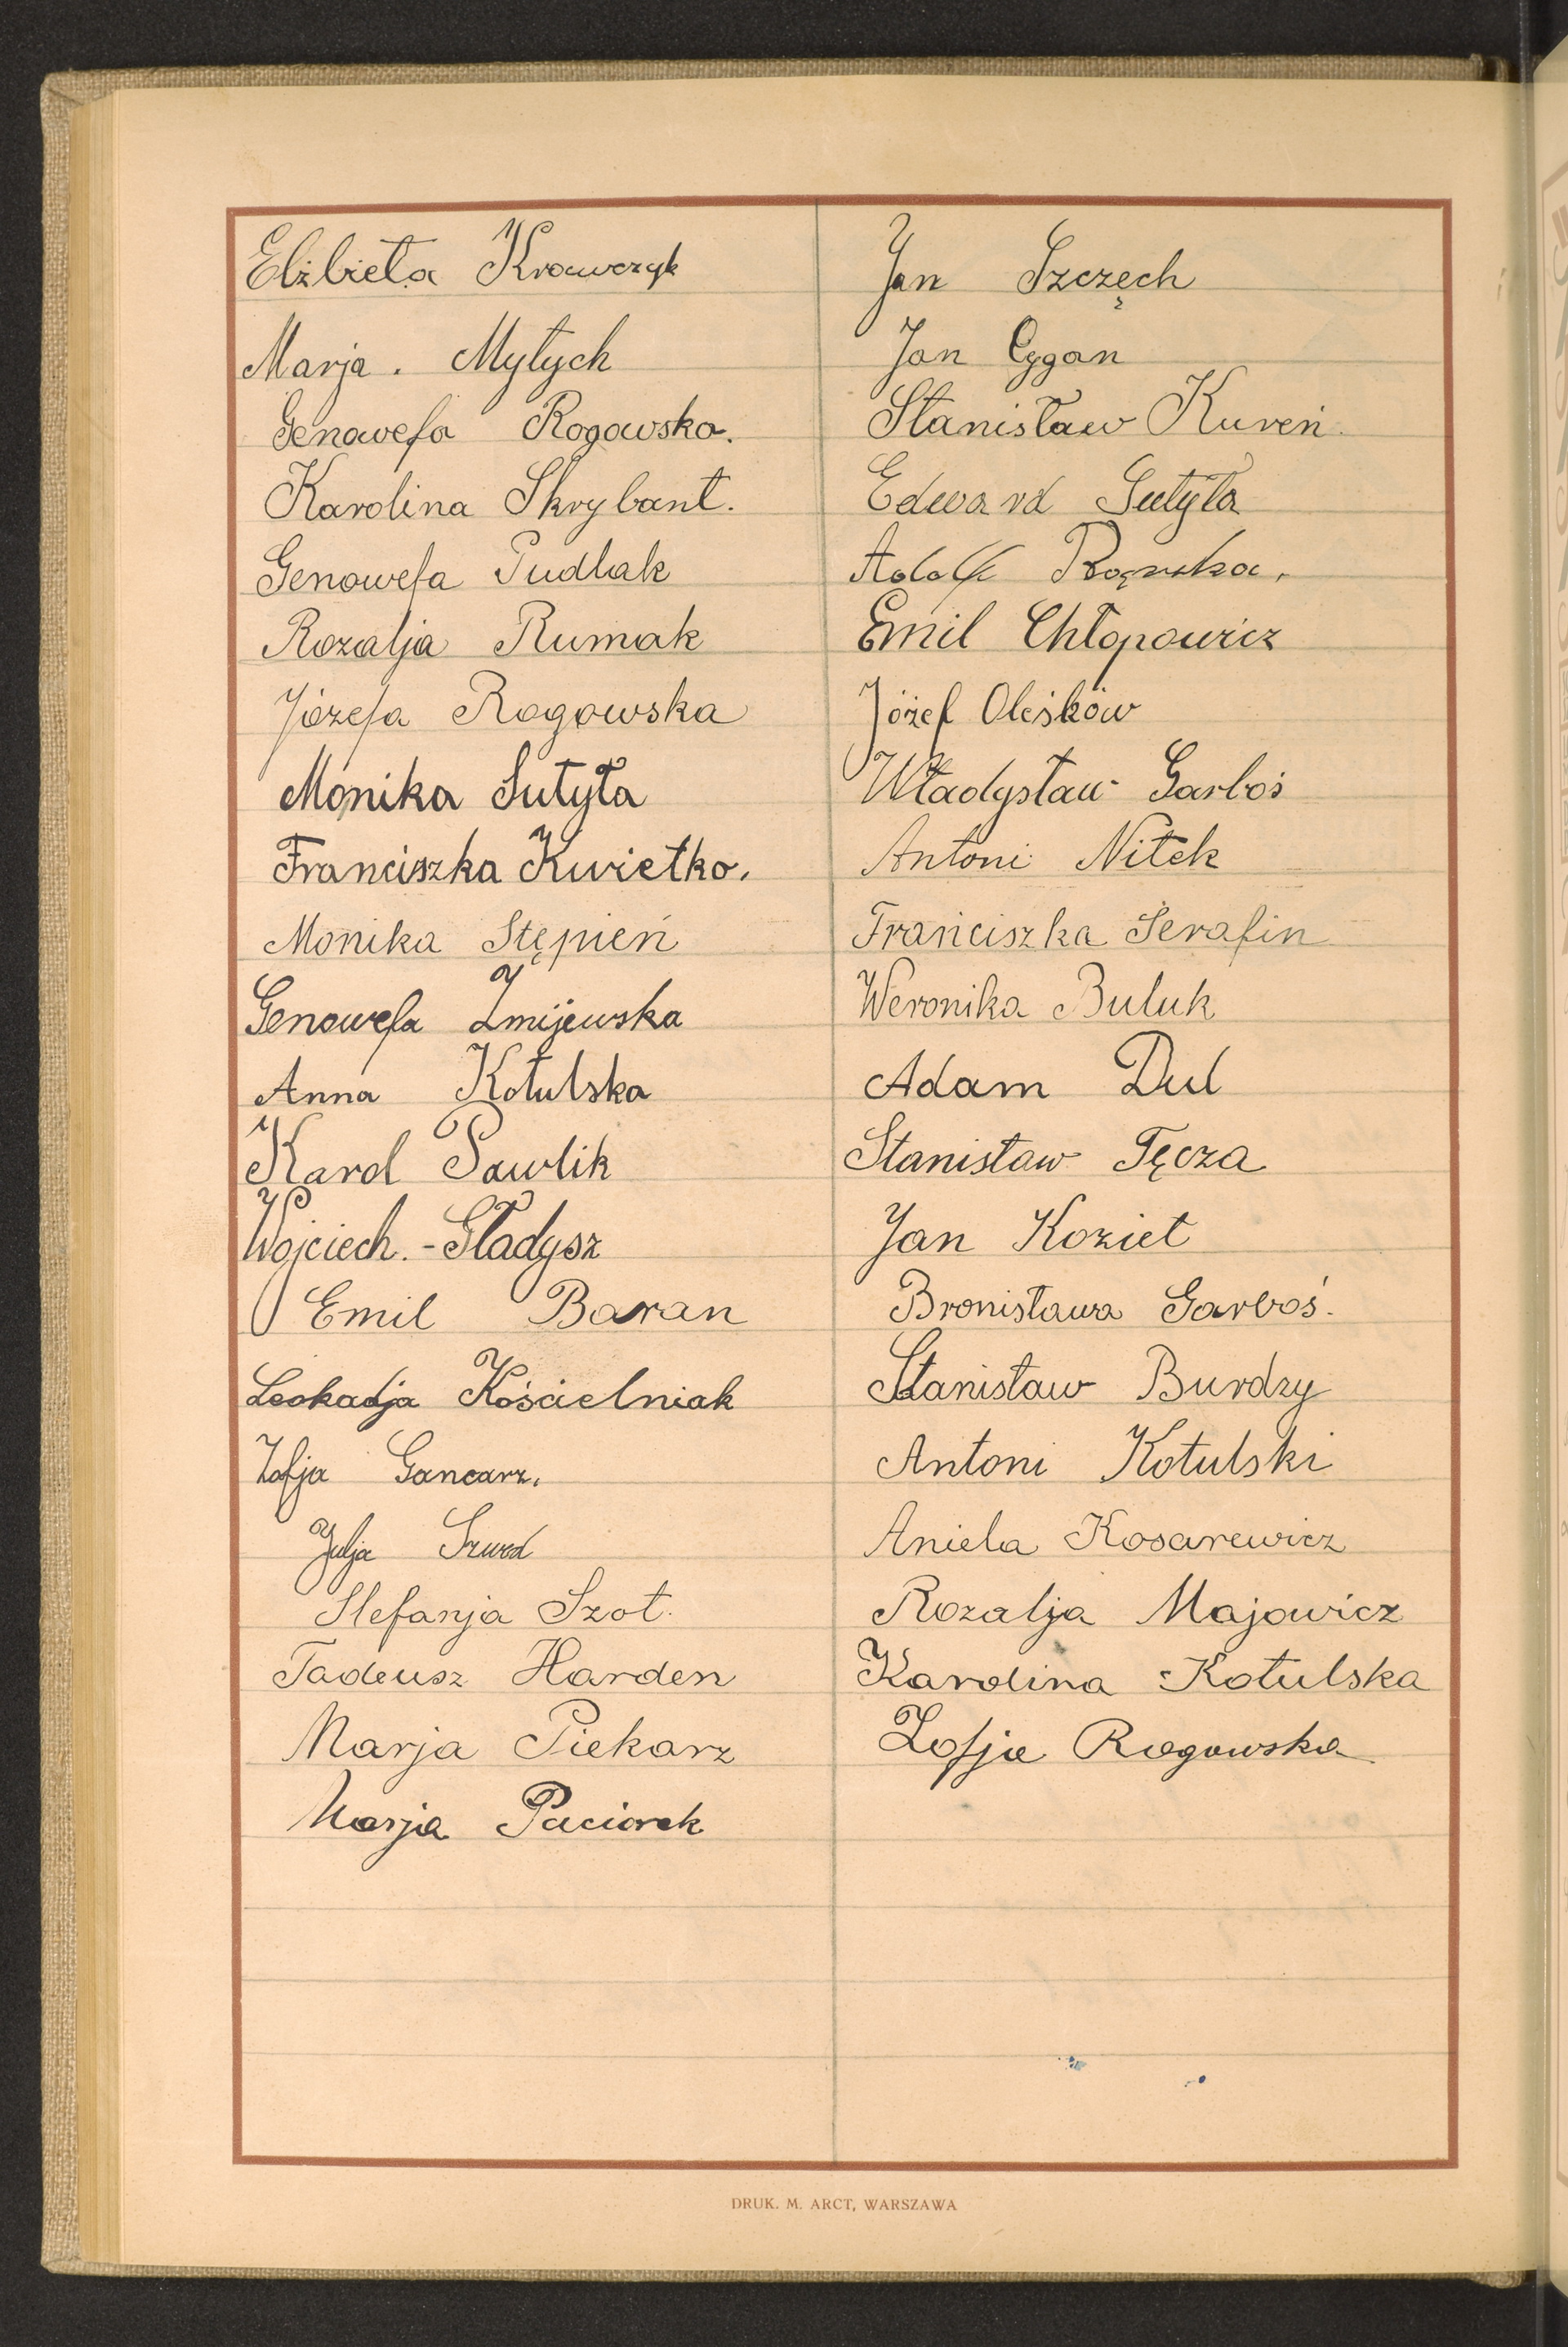 Elżbieta Krawczyk
Marja. Mytych
Genowefa Rogowska.
Karolina Skrybant.
Genowefa Pudlak
Rozalja Rumak
Józefa Rogowska
Monika Sutyła
Franciszka Kwietko.
Monika Stępień
Genowefa Żmijewska
Anna Kotulska
Karol Pawlik
Wojciech.-Gładysz
Emil Baran
Leokadja Kościelniak
Zofja Gancarz.
Julja Szwed
Stefanja Szot.
Tadeusz Harden
Marja Piekarz
Marja Paciorek
Jan Szczęch
Jan Cygan
Stanisław Kureń
Edward Sutyła
Adolf
Emil Chłopowicz
Józef Oleśków
Władysław Garboś
Antoni Nitek
Franciszka Serafin
Weronika Buluk
Adam Dul
Stanisław Tęcza
Jan Kozieł
Bronisława Garboś.
Stanisław Burdzy
Antoni Kotulski
Aniela Kosarewicz
Rozalja Majowicz
Karolina Kotulska
Zofja Rogowska
DRUK. M. ARCT, WARSZAWA